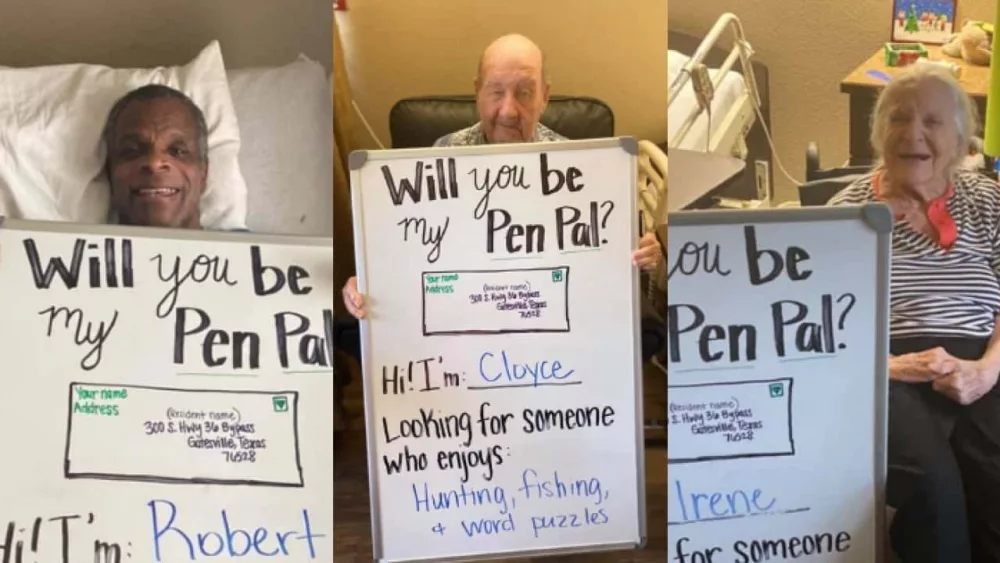 Will you be
my Pen Pal
Your name
Address
(Resident name)
300 S. Hwy 36 Bypass
Gatesville, Texas
76528
Hi! I'm: Robert
Will you be
my Pen Pal?
Your name
Address
(Resident name)
300 S. Hwy 36 Bypass
Gatesville, Texas
76528
Hi! I'm: Cloyce
Looking for someone
who enjoys:
Hunting, fishing,
& word puzzles
ou be
Pen Pal?
(Resident name)
S. Hwy 36 Bypass
Gatesville, Texas
76528
Irene
for someone